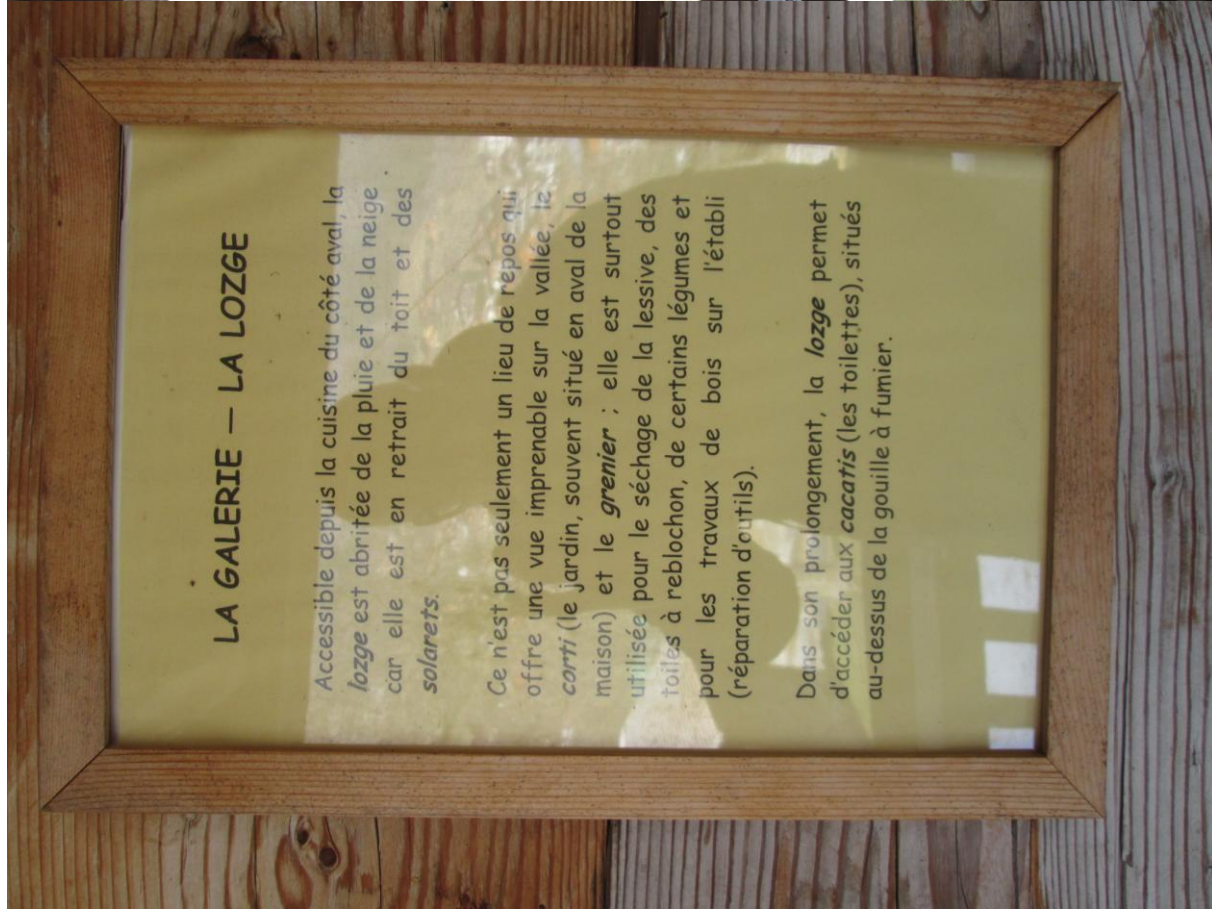 LA GALERIE – LA LOZGE
Accessible depuis la cuisine du côté aval, la
lozge est abritée de la pluie et de la neige
car elle est en retrait du toit et des
solarets.
Ce n'est pas seulement un lieu de repos qui
offre une vue imprenable sur la vallée, le
corti (le jardin, souvent situé en aval de la
maison) et le grenier ; elle est surtout
utilisée pour le séchage de la lessive, des
toiles à reblochon, de certains légumes et
pour les travaux de bois sur l'établi
(réparation d'outils).
Dans son prolongement, la lozge permet
d'accéder aux cacatis (les toilettes), situés
au-dessus de la gouille à fumier.